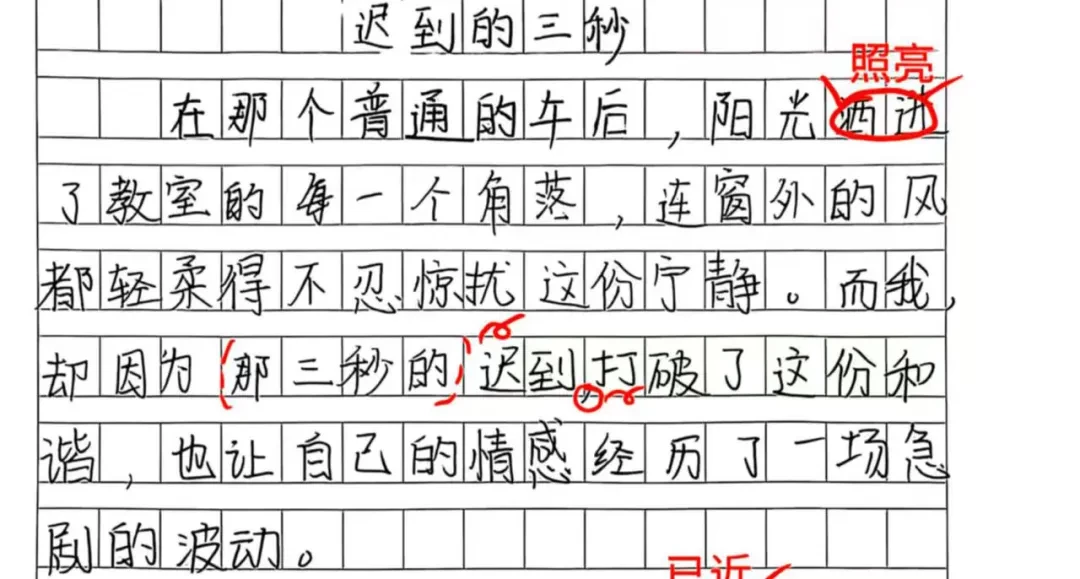 迟到的三秒
照亮
在那个普通的午后，阳光洒进
了教室的每一个角落，连窗外的风
都轻柔得不忍惊扰这份宁静。而我，
却因为(那三秒的)迟到,打破了这份和
谐，也让自己的情感经历了一场急
剧的波动。
已近